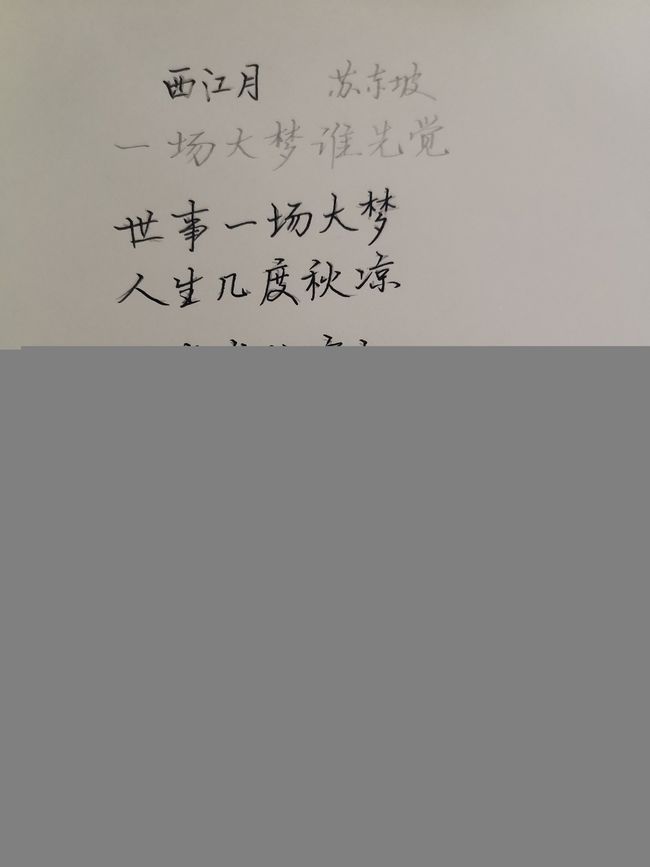 西江月 苏东坡
一场大梦谁先觉
世事一场大梦
人生几度秋凉